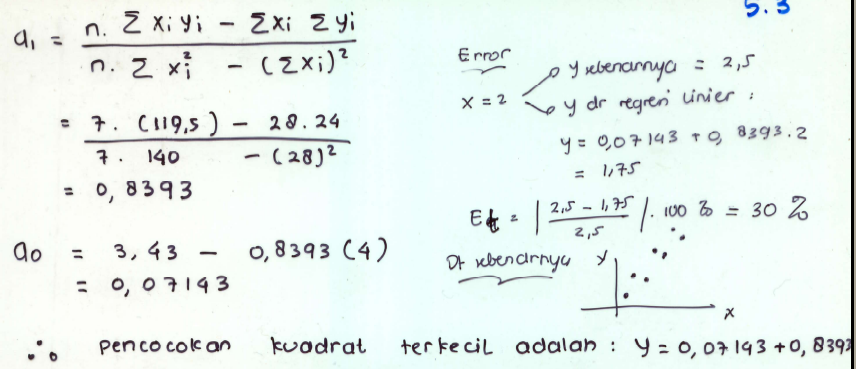 5.3
a₁ = (n. Σ xi yi − Σxi Σyi) / (n. Σ xi² − (Σxi)²)
= (7. (119,5) − 28.24) / (7. 140 − (28)²)
= 0,8393
a₀ = 3,43 − 0,8393 (4)
= 0,07143
Error
x = 2
y sebenarnya = 2,5
y dr regresi linier :
y = 0,07143 + 0,8393.2
= 1,75
Et = |(2,5 − 1,75) / 2,5| . 100 % = 30 %
Dt sebenarnya
y
x
∴ pencocokan kuadrat terkecil adalah : y = 0,07143 + 0,8393